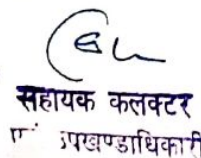 सहायक कलक्टर
उपखण्डाधिकारी